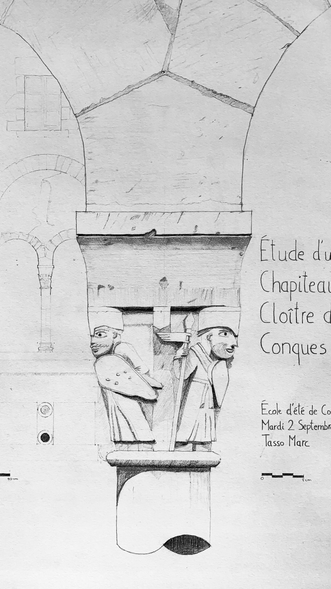 Étude d'u
Chapiteau
Cloître d
Conques
École d'été de Co
Mardi 2 Septembr
Tasso Marc